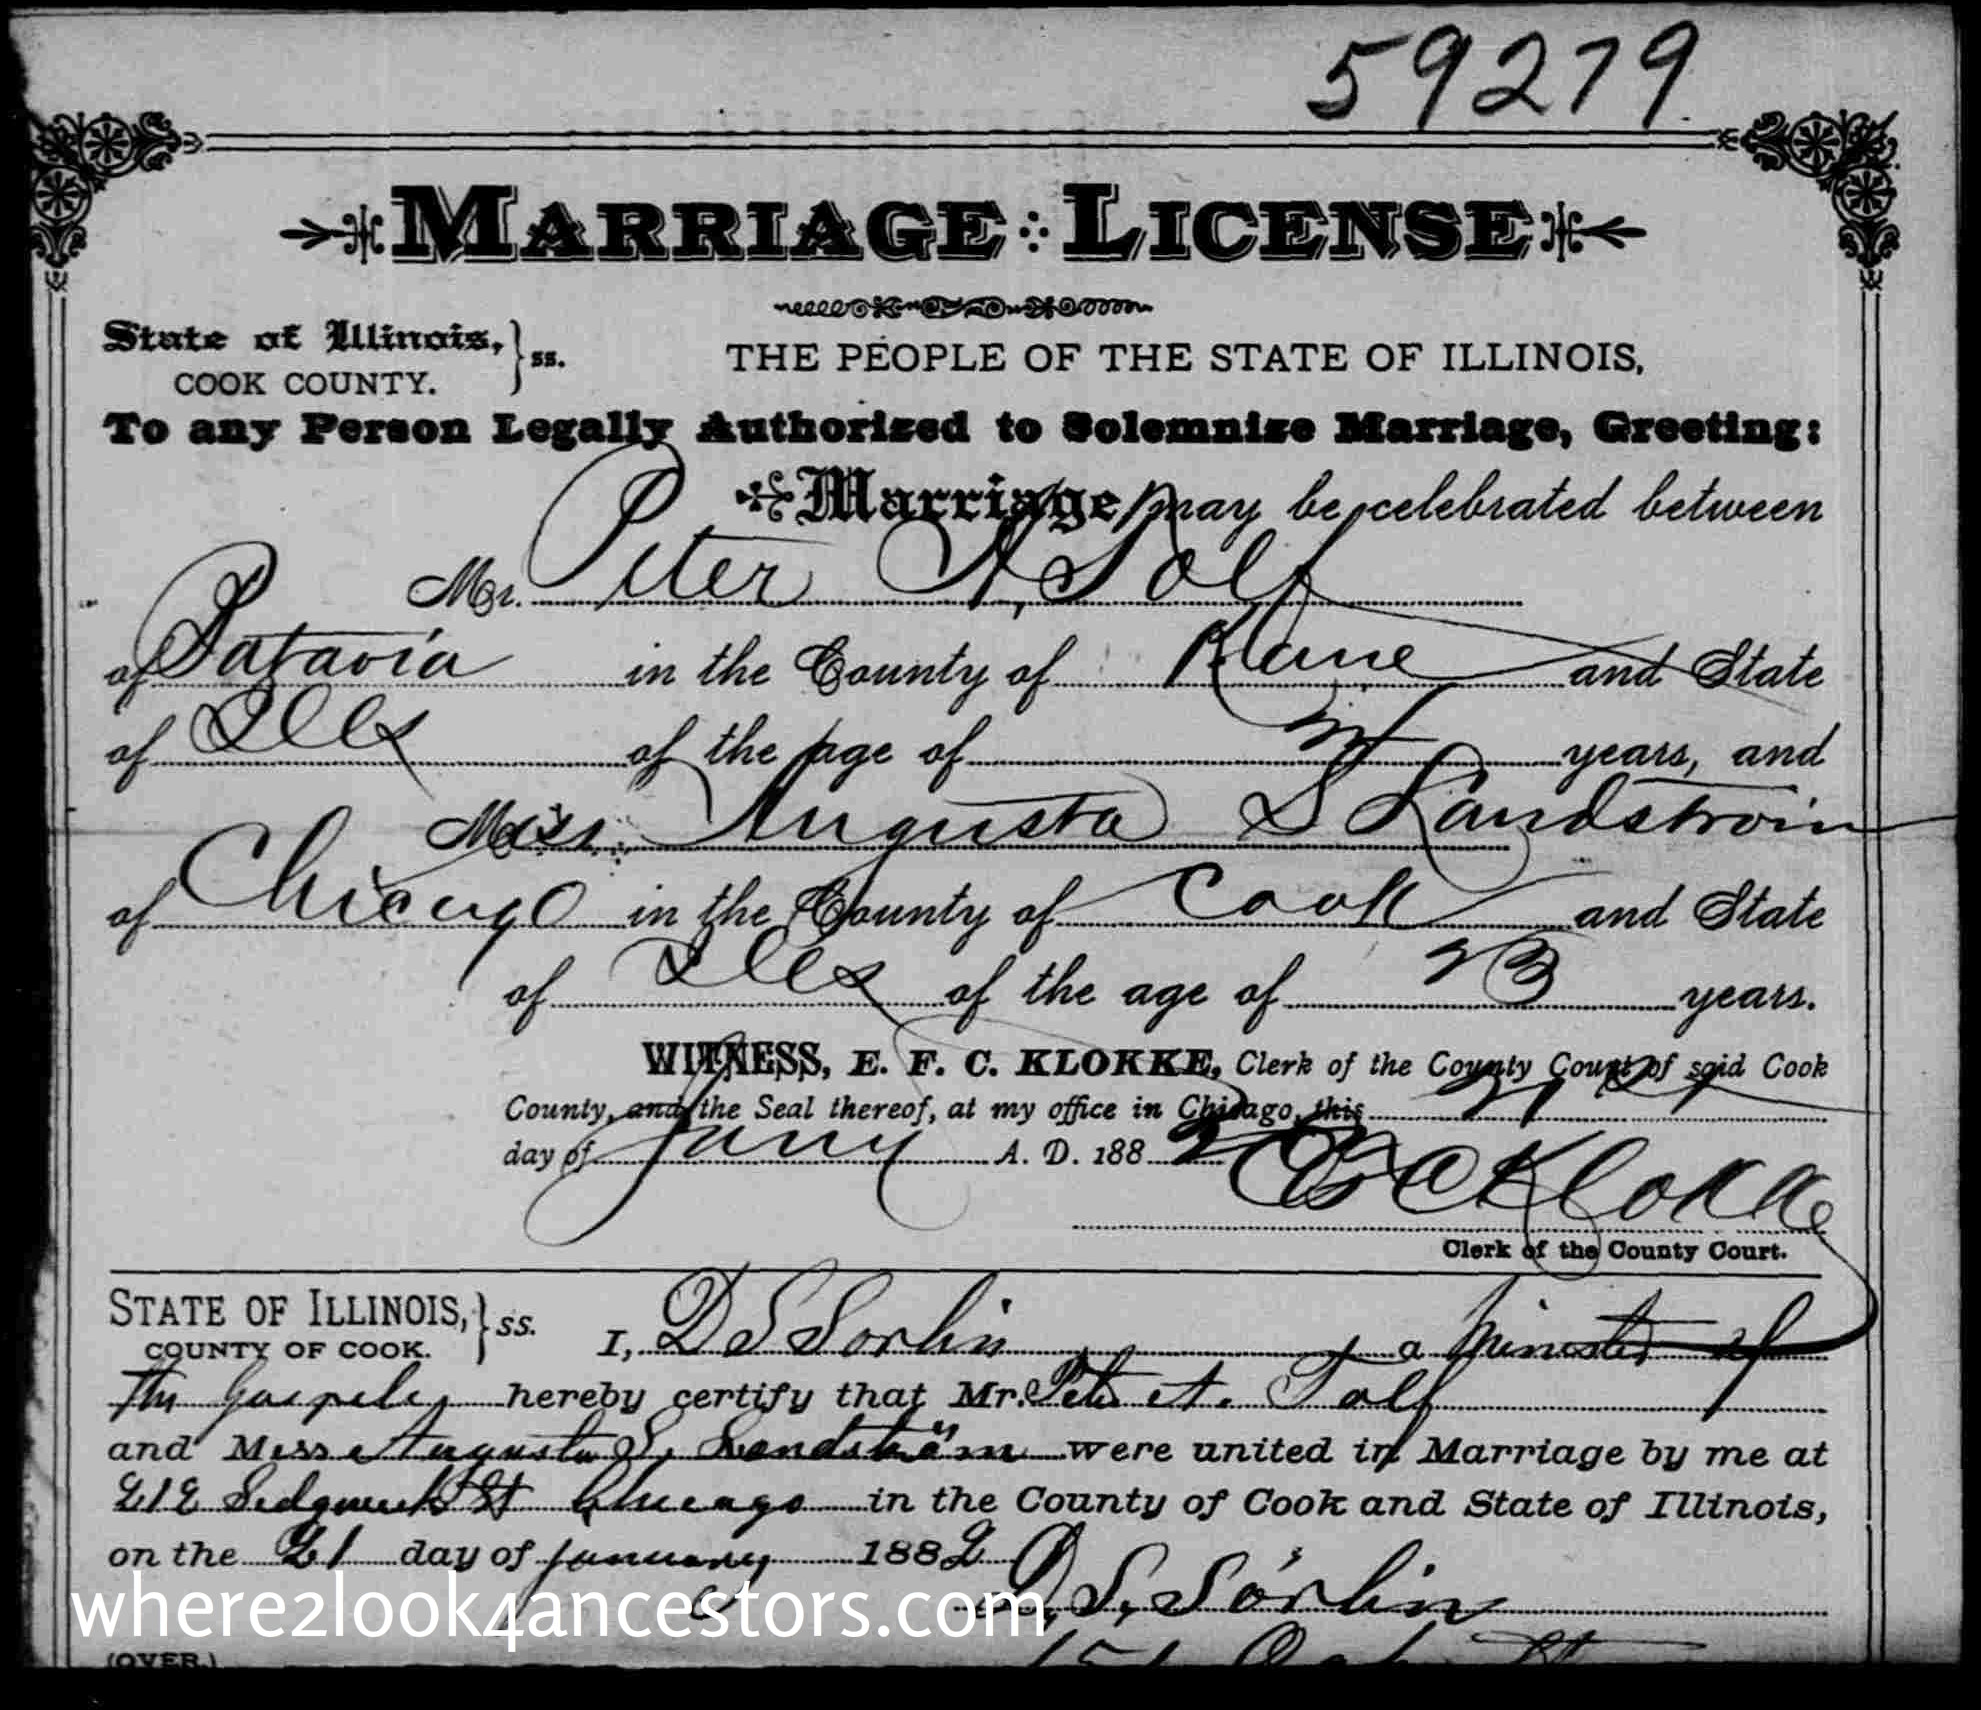 59279
MARRIAGE LICENSE
State of Illinois, } ss. THE PEOPLE OF THE STATE OF ILLINOIS,
COOK COUNTY.
To any Person Legally Authorized to Solemnize Marriage, Greeting:
Marriage may be celebrated between
Mr. Peter A. Tolf
of Batavia in the County of Kane and State
of Ills of the age of years, and
Miss Augusta S Landstrom
of Chicago in the County of Cook and State
of Ills of the age of 23 years.
WITNESS, E. F. C. KLOKKE, Clerk of the County Court of said Cook
County, and the Seal thereof, at my office in Chicago, this 21st
day of Jany A. D. 1882
E F C Klokke
Clerk of the County Court.
STATE OF ILLINOIS, } ss. I, D S Sorlin a Minister of
COUNTY OF COOK.
the Gospel hereby certify that Mr. Peter A. Tolf
and Miss Augusta S. Landström were united in Marriage by me at
212 Sedgwick St Chicago in the County of Cook and State of Illinois,
on the 21 day of January 1882
D. S. Sörlin
where2look4ancestors.com
151 Oak St
(OVER.)